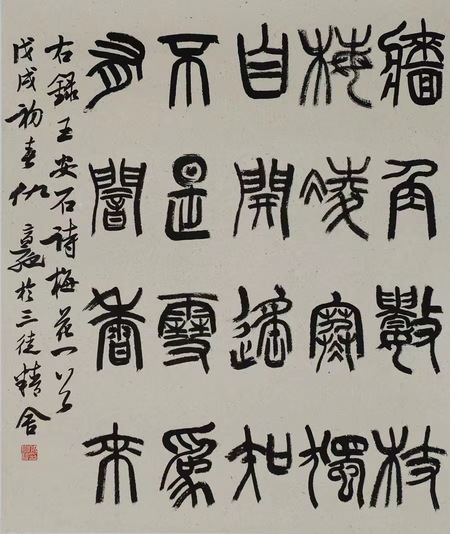 牆角數枝
梅凌寒獨
自開遙知
不是雪為
有闇香來
右錄王安石詩梅花一首
戊戌初春仇於三精舍